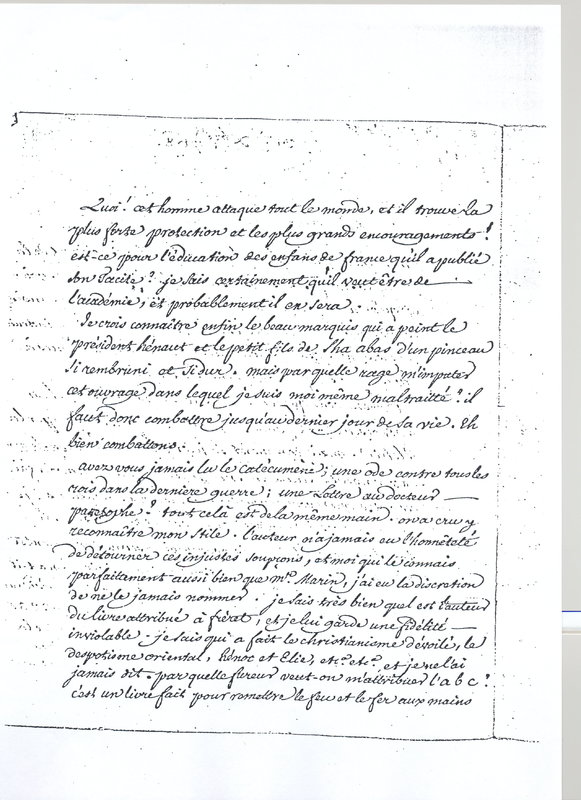 Quoi! cet homme attaque tout le monde, et il trouve la
plus forte protection et les plus grands encouragements!
est-ce pour l'éducation des enfans de france qu'il a publié
son Tacite? je sais certainement qu'il veut être de
l'académie, et probablement il en sera.
Je crois connaître enfin le beau marquis qui a peint le
président hénaut et le petit fils de Sha abas d'un pinceau
si rembruni et si dur. mais par quelle rage m'imputer
cet ouvrage dans lequel je suis moi même maltraitté? il
faut donc combattre jusqu'au dernier jour de sa vie. Eh
bien combattons.
avez vous jamais lu le catécumène, une ode contre tous les
rois dans la derniere guerre; une Lettre au docteur
pansophe? tout celà est de la même main. on a cru y
reconnaître mon stile. l'auteur n'a jamais eu l'honnêteté
de détourner ces injustes soupçons, et moi qui le connais
parfaitement aussi bien que mr. Marin, j'ai eu la discretion
de ne le jamais nommer. je sais très bien quel est l'auteur
du livre attribué à fréret, et je lui garde une fidélité
inviolable. je sais qui a fait le christianisme dévoilé, le
despotisme oriental, hénoc et Elie, etc. etc., et je ne l'ai
jamais dit. par quelle fureur veut-on m'attribuer l'a b c?
c'est un livre fait pour remettre le feu et le fer aux mains